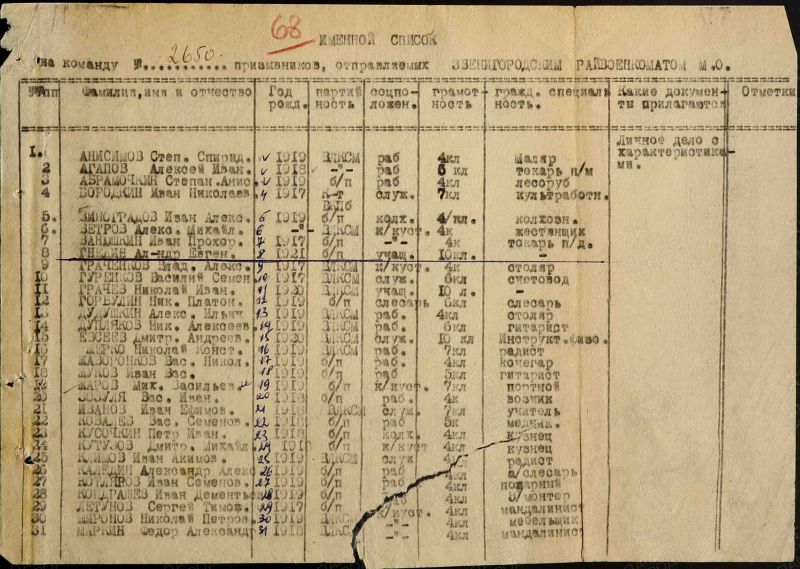 68
ИМЕННОЙ СПИСОК
на команду №. 2650. призывников, отправляемых ЗВЕНИГОРОДСКИМ РАЙВОЕНКОМАТОМ М.О.
№№пп Фамилия,имя и отчество Год рожд. партийность соцположен. грамотность гражд. специальность. Какие документы прилагаются Отметки
1. АНИСИМОВ Степ. Спирид. 1919 ВЛКСМ раб 4кл маляр Личное дело с характеристиками.
2 АГАПОВ Алексей Иван. 1918 -"- раб 5 кл токарь п/м
3 АБРАМОЧКИН Степан.Анис. 1919 б/п раб 4кл лесоруб
4 БОРОДКИН Иван Николаев. 4 1917 к-т ВКПб служ. 7кл культработн.
5. ВИНОГРАДОВ Иван Алекс. 5 1919 б/п колх. 4/кл. колхозн.
6. ВЕТРОВ Алекс. Михайл. 6 -"- ВЛКСМ к/куст. 4к жестянщик
7 ЗАНИШКИН Иван Прохор. 7 1917 б/п -"- 4к токарь п/д.
8 Ал-ндр Евген. 8 1921 б/п учащ. 10кл. -
9 ГРАЧЕНКОВ Влад. Алекс. 9 1917 ВЛКСМ к/куст. 4к столяр
10 ГУРЕНКОВ Василий Семен. 10 1917 ВЛКСМ служ. 6кл счетовод
11 ГРАЧЕВ Николай Иван. 11 1920 ВЛКСМ учащ. 10 л. -
12 ГОРБУЛИН Ник. Платон. 12 1919 б/п слесарь 6кл слесарь
13 ДУДУШКИН Алекс. Ильич 13 1919 ВЛКСМ раб. 4кл столяр
14 ДУПЛЯКОВ Ник. Алексеев. 14 1919 б/п раб. 6кл гитарист
15 ЕВСЕЕВ Дмитр. Андреев. 15 1920 ВЛКСМ служ. 10 кл Инструкт.физо.
16 Николай Конст. 16 1919 ВЛКСМ раб. 7кл радист
17 ЖАВОРОНКОВ Вас. Никол. 17 1918 б/п раб. 4кл кочегар
18 ЖУКОВ Иван Вас. 18 1918 б/п раб 6кл гитарист
19 ЖАРОВ Мих. Васильев. 19 1919 б/п к/куст. 7кл портной
20 ЗОЗУЛЯ Вас. Иван. 20 1918 б/п раб. 4к возчик
21 ИВАНОВ Иван Ефимов. 21 1918 ВЛКСМ служ. 7кл учитель
22 КОВАЛЕВ Вас. Семенов. 22 1918 б/п раб 5к медник.
23 КУСОЧКИН Петр Иван. 23 1918 б/п колх. 4кл кузнец
24 КУТУЗОВ Дмитр. Михайл. 24 1918 б/п к/куст 4кл кузнец
25 КЛИМОВ Иван Акимов. 25 1919 ВЛКСМ служ радист
26 КАЛЕДИН Александр Алекс. 26 1919 б/п раб 4кл а/слесарь
27 КОТЛЯРОВ Иван Семенов. 27 1919 б/п раб 4кл пожарный
28 КОНДРАШЕВ Иван Дементьев 28 1919 б/п 4кл э/монтер
29 ЛЕТУНОВ Сергей Тимоф. 29 1917 б/п к/куст. 4кл мандалинист
30 МИРОНОВ Николай Петров. 30 1919 ВЛКСМ -"- 4кл мебельщик
31 МАРКИН Федор Александр. 31 1918 ВЛКСМ -"- 4кл мандалинист